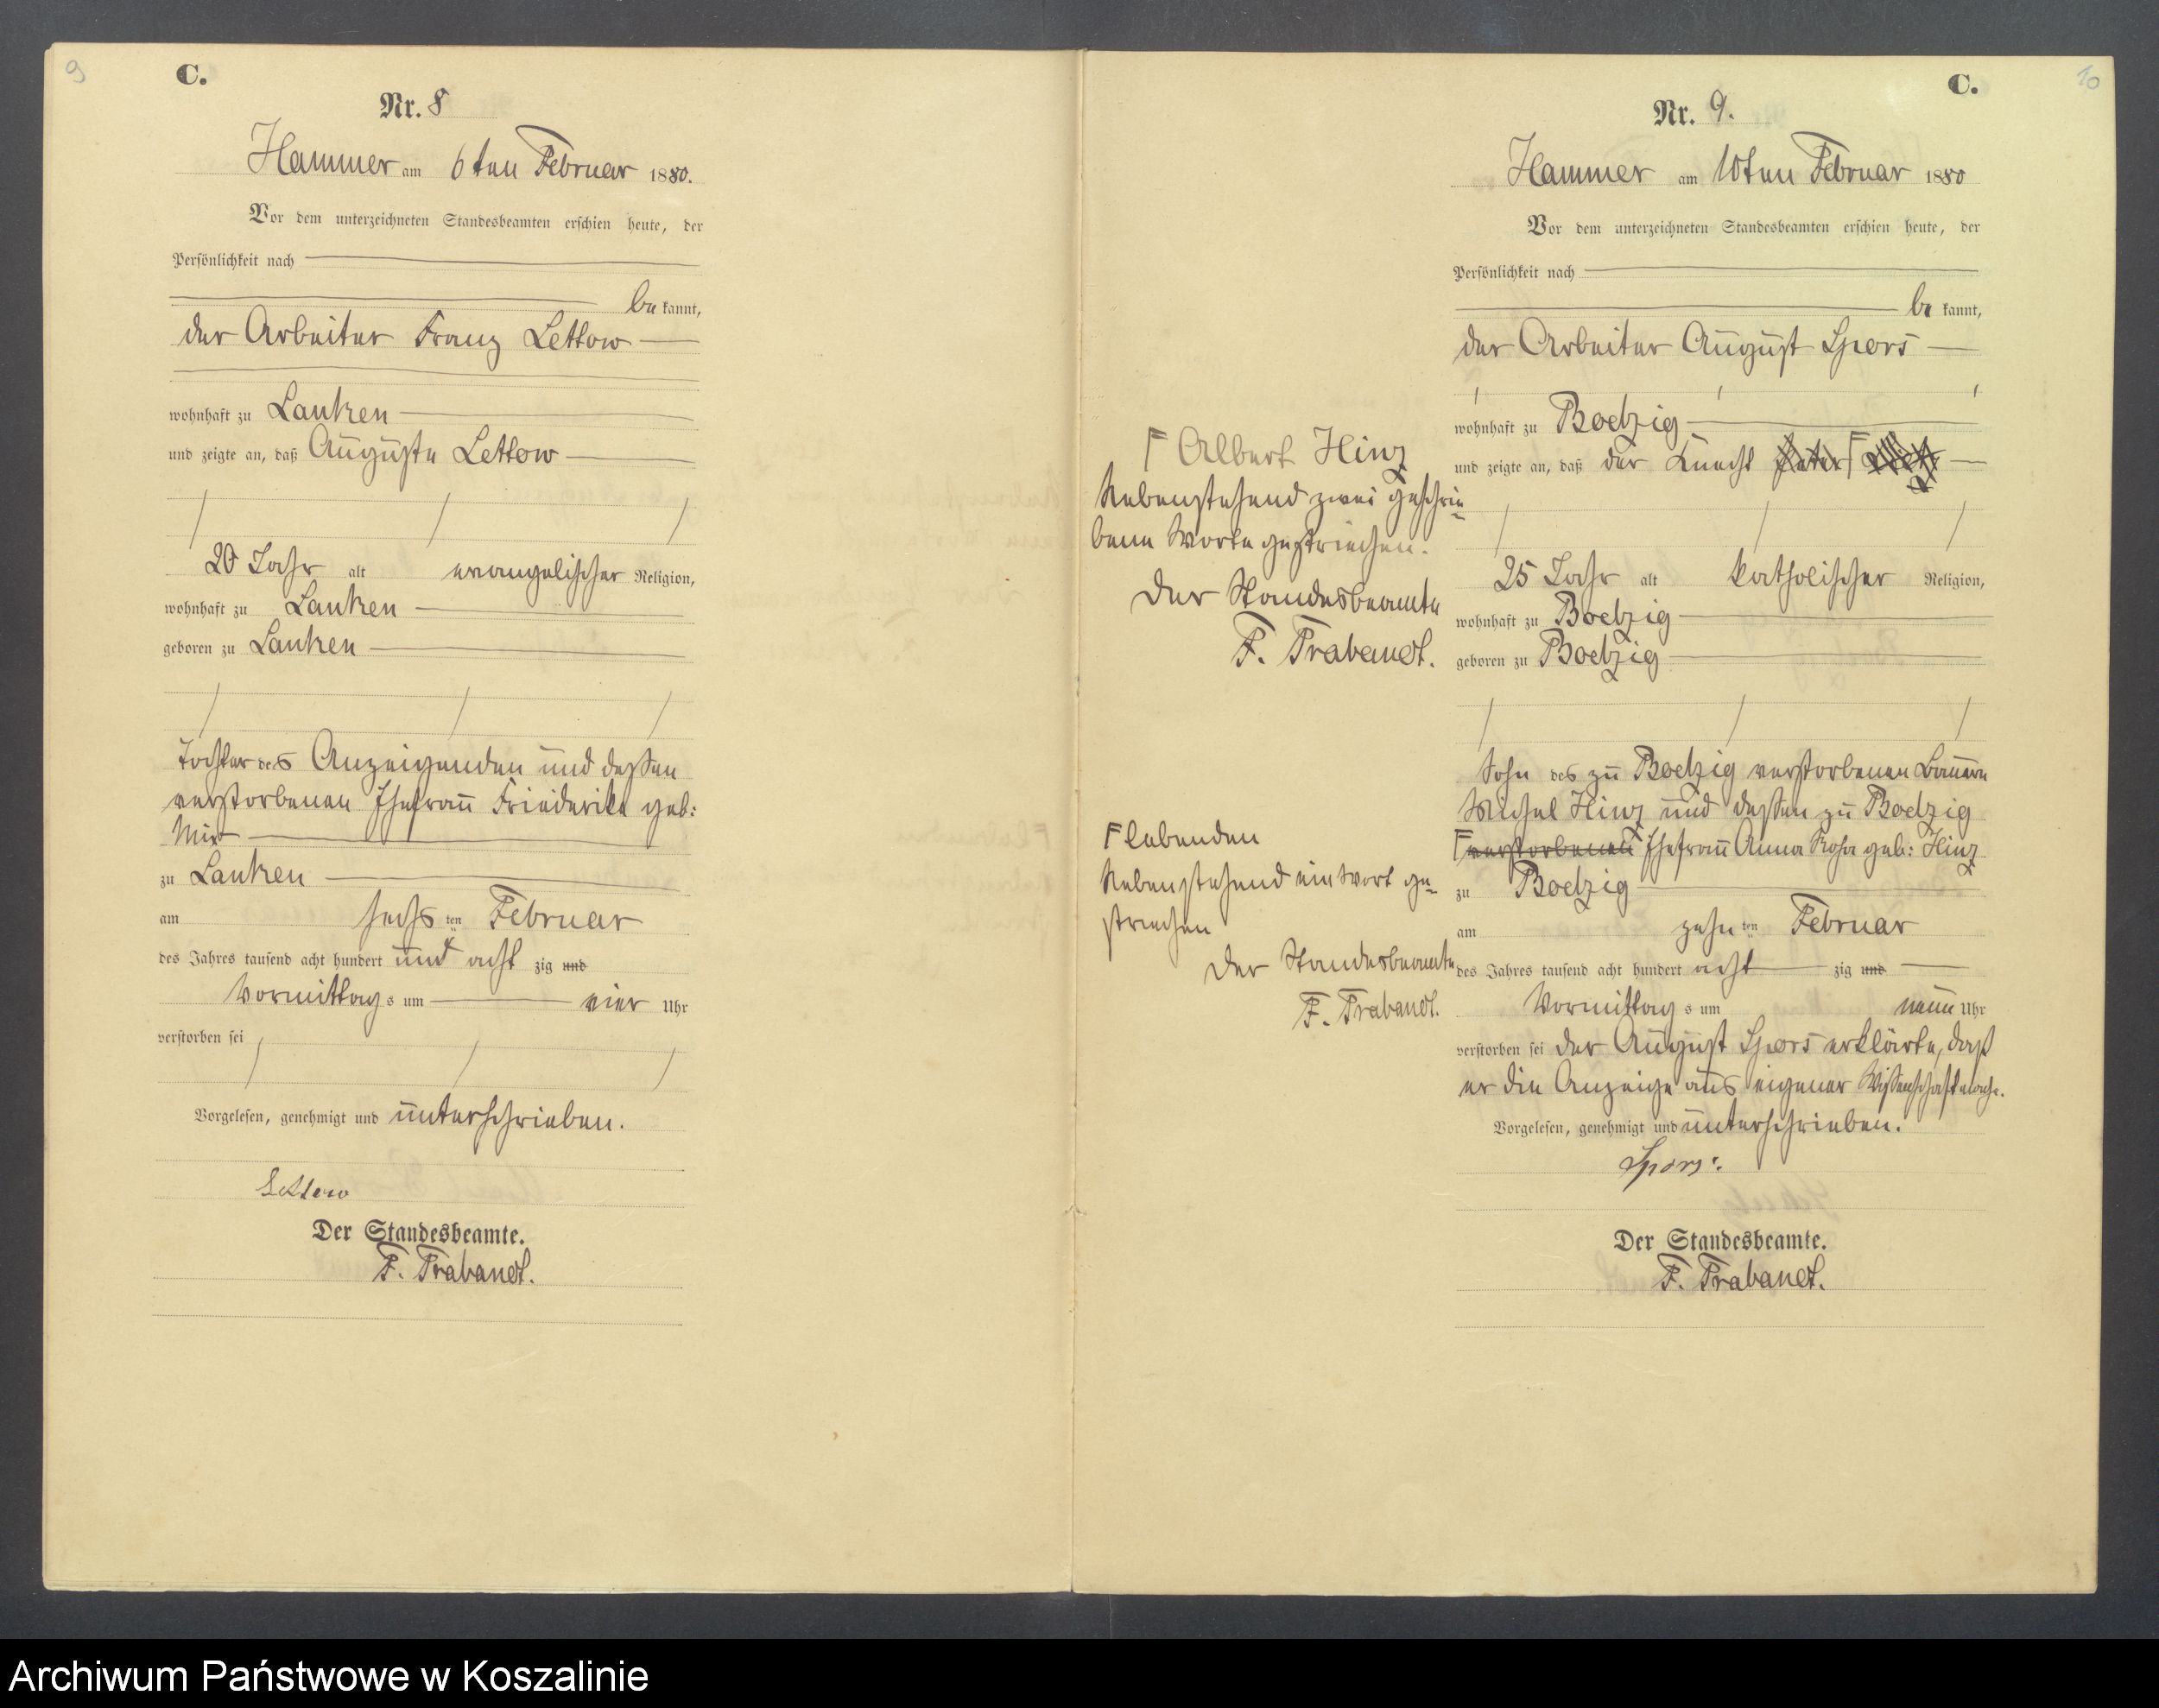 9
C.
Nr. 8
Hammer am 6ten Februar 1880.
Vor dem unterzeichneten Standesbeamten erschien heute, der
Persönlichkeit nach
be kannt,
der Arbeiter Franz Lettow
wohnhaft zu Lanken
und zeigte an, daß Auguste Lettow
20 Jahr alt evangelischer Religion,
wohnhaft zu Lanken
geboren zu Lanken
Tochter des Anzeigenden und dessen
verstorbenen Ehefrau Friederike geb:
zu Lanken
am sechs ten Februar
des Jahres tausend acht hundert und acht zig und
Vormittag s um vier Uhr
verstorben sei
Vorgelesen, genehmigt und unterschrieben.
Lettow
Der Standesbeamte.
F. Trabandt.
10
C.
Nr. 9.
Hammer am 10ten Februar 1880
Vor dem unterzeichneten Standesbeamten erschien heute, der
Persönlichkeit nach
be kannt,
der Arbeiter August Spors
wohnhaft zu Boelzig
und zeigte an, daß der Knecht
Γ Albert Hinz
Nebenstehend zwei geschrie-
bene Worte gestrichen.
Der Standesbeamte
F. Trabandt.
25 Jahr alt katholischer Religion,
wohnhaft zu Boelzig
geboren zu Boelzig
Sohn des zu Boelzig verstorbenen Bauern
Michel Hinz und dessen zu Boelzig
Γ verstorbenen Ehefrau Anna Rosa geb: Hinz
Γ lebenden
Nebenstehend ein Wort ge-
strichen
Der Standesbeamte
F. Trabandt.
zu Boelzig
am zehn ten Februar
des Jahres tausend acht hundert acht zig und
Vormittag s um neun Uhr
verstorben sei der August Spors erklärte, daß
er die Anzeige aus eigener Wissenschaft mache.
Vorgelesen, genehmigt und unterschrieben.
Spors.
Der Standesbeamte.
F. Trabandt.
Archiwum Państwowe w Koszalinie